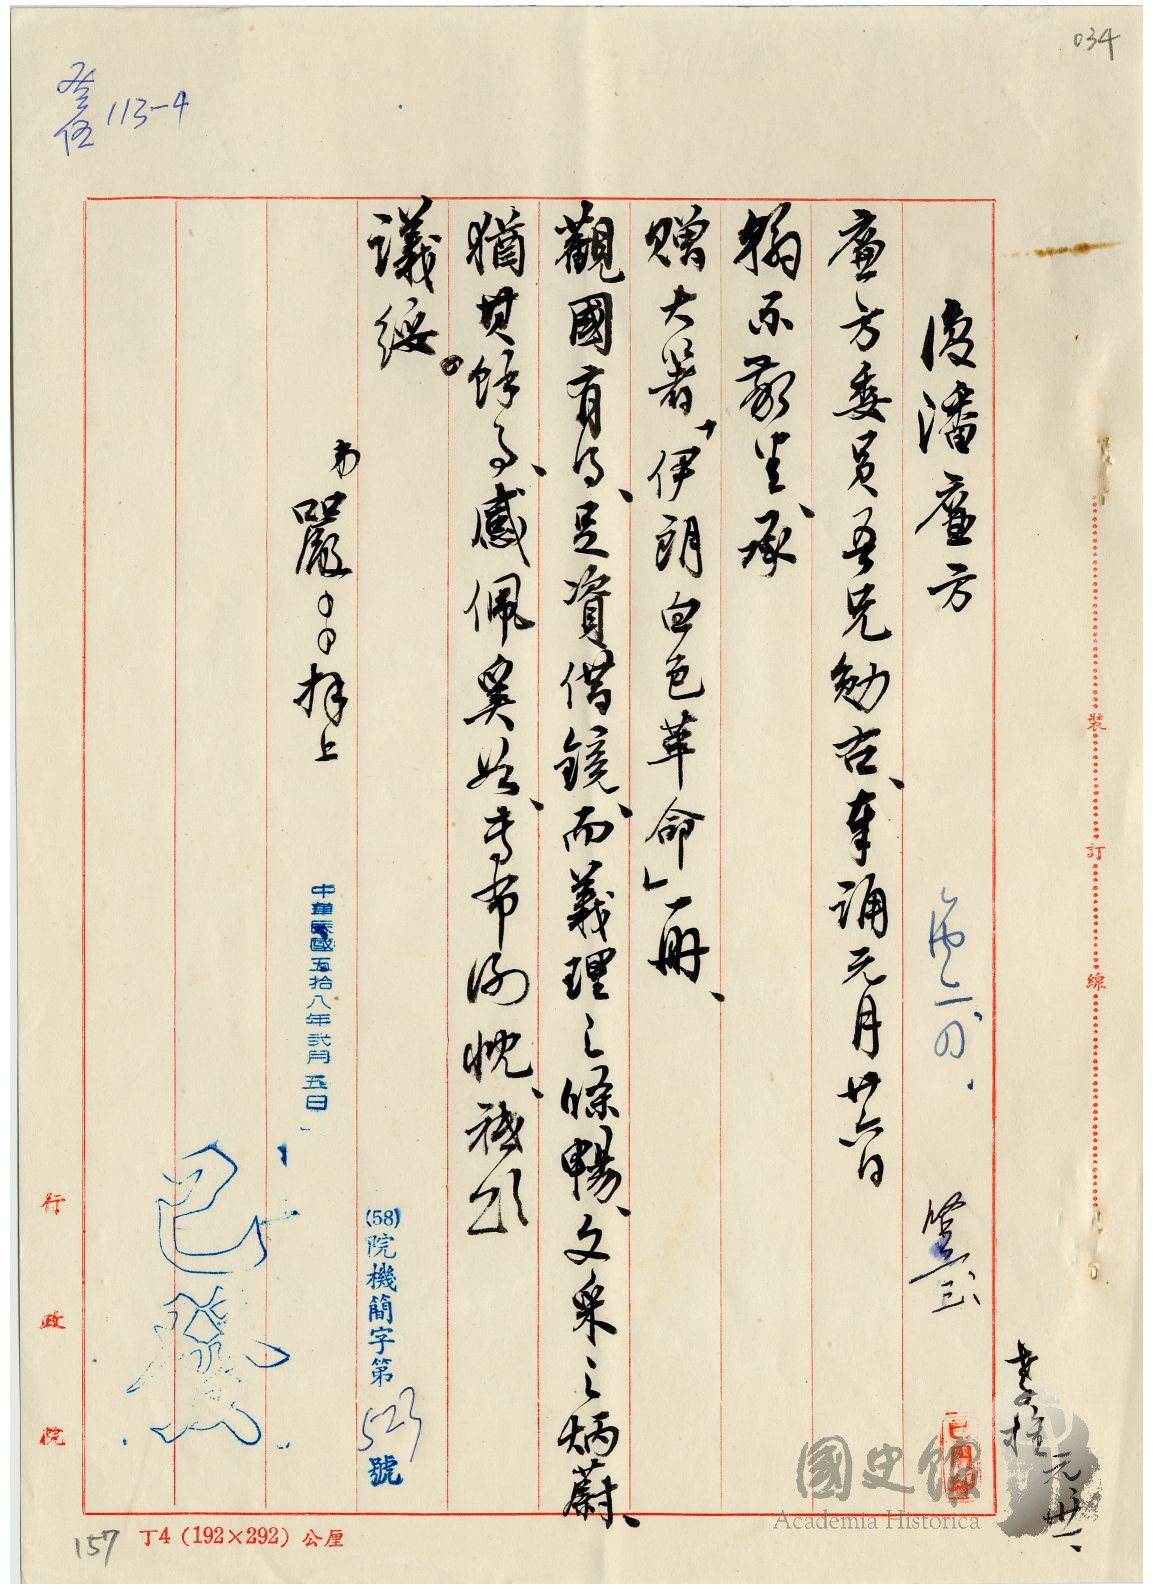 034
113-4
復潘廉方
廉方委員吾兄勛右、奉誦元月廿六日
翰示敬悉、承
贈大著「伊朗白色革命」一冊、
觀國有得、足資借鏡、而義理之條暢、文采之炳蔚、
猶其餘事、感佩奚如、專布謝忱、祗頌
議綏。
弟嚴〇〇拜上
中華民國五拾八年貳月五日
(58)院機簡字第523號
已發
李柱 元、卅一、
裝訂線
行政院
157
丁4 (192×292) 公厘
國史館
Academia Historica